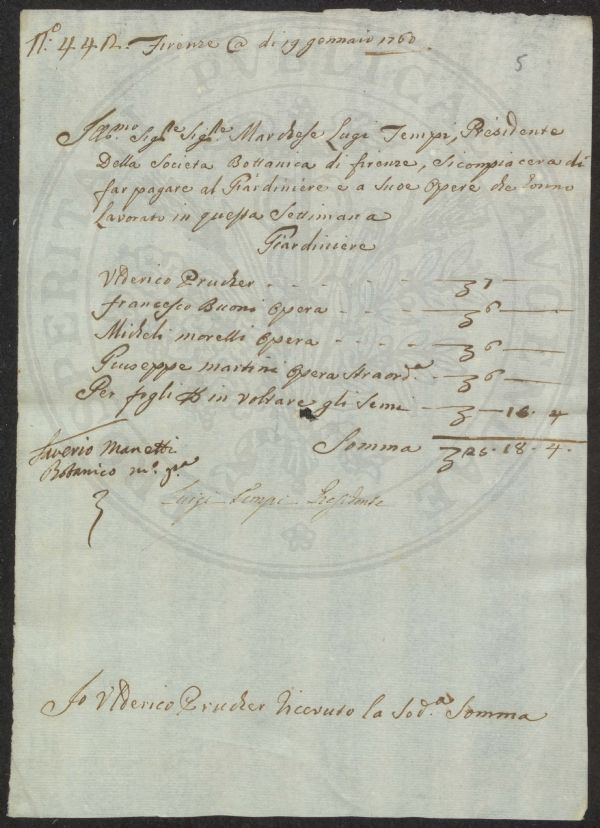 N.º 442. Firenze @ di 19 gennaio 1760
5
Illmo Sigre Sigre Marchese Luigi Tempi, Presidente
Della Societa Bottanica di firenze, si compiacera di
far pagare al Giardiniere e a sue Opere che Sonno
Lavorato in questa Settimana
Giardiniere
Vlderico Prucher . - - - - - 7 —
Francesco Buoni Opera - - - 6 —
Micheli morelli Opera - - - - 6 —
Giuseppe martini Opera straord.a - 6 —
Per fogli in voltare gli Seme - — 18. 4
Somma 25. 18. 4.
Saverio Manetti
Botanico
Luigi Tempi Presidente
Jo Vlderico Prucher Riceuuto la Sod.a Somma